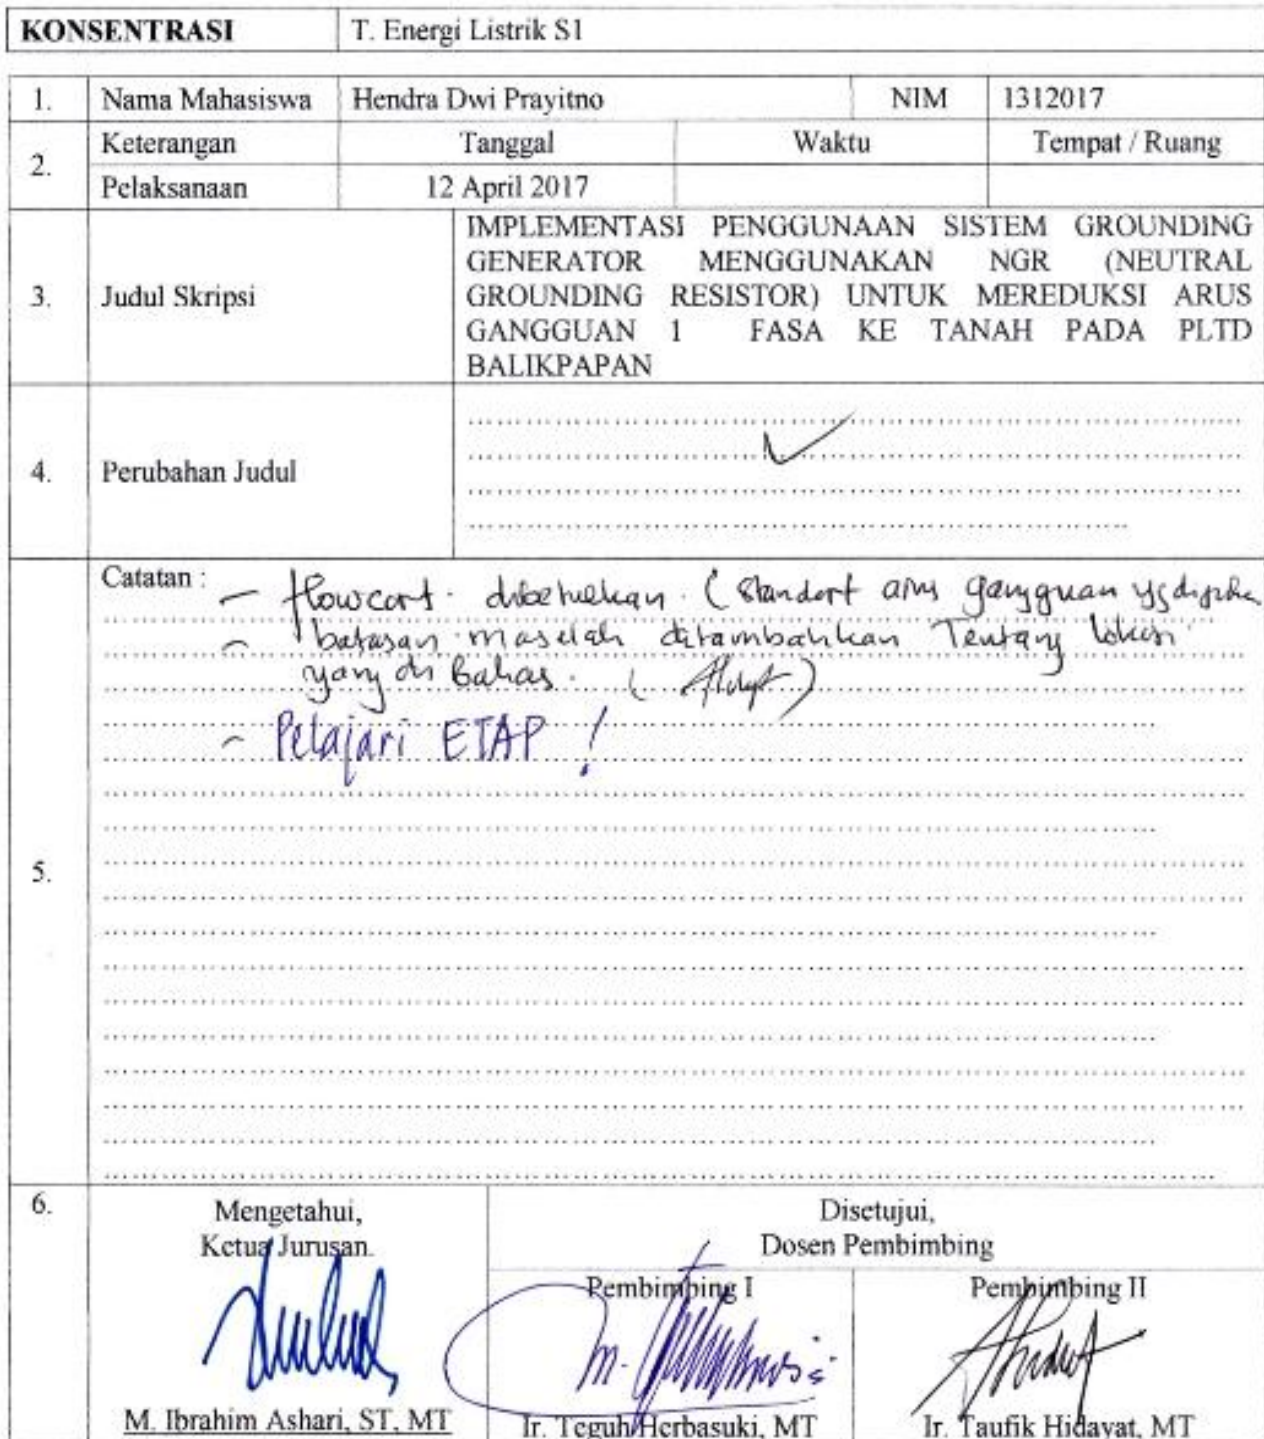 KONSENTRASI T. Energi Listrik S1
1. Nama Mahasiswa Hendra Dwi Prayitno NIM 1312017
2. Keterangan Tanggal Waktu Tempat / Ruang
Pelaksanaan 12 April 2017
3. Judul Skripsi
IMPLEMENTASI PENGGUNAAN SISTEM GROUNDING
GENERATOR MENGGUNAKAN NGR (NEUTRAL
GROUNDING RESISTOR) UNTUK MEREDUKSI ARUS
GANGGUAN 1 FASA KE TANAH PADA PLTD
BALIKPAPAN
4. Perubahan Judul
5. Catatan :
- flowcart. dibetulkan. (standart arus gangguan yg
- batasan masalah ditambahkan Tentang lokasi
yang di Bahas.
- Pelajari ETAP !
6. Mengetahui, Disetujui,
Ketua Jurusan. Dosen Pembimbing
Pembimbing I Pembimbing II
M. Ibrahim Ashari, ST, MT Ir. Teguh Herbasuki, MT Ir. Taufik Hidayat, MT